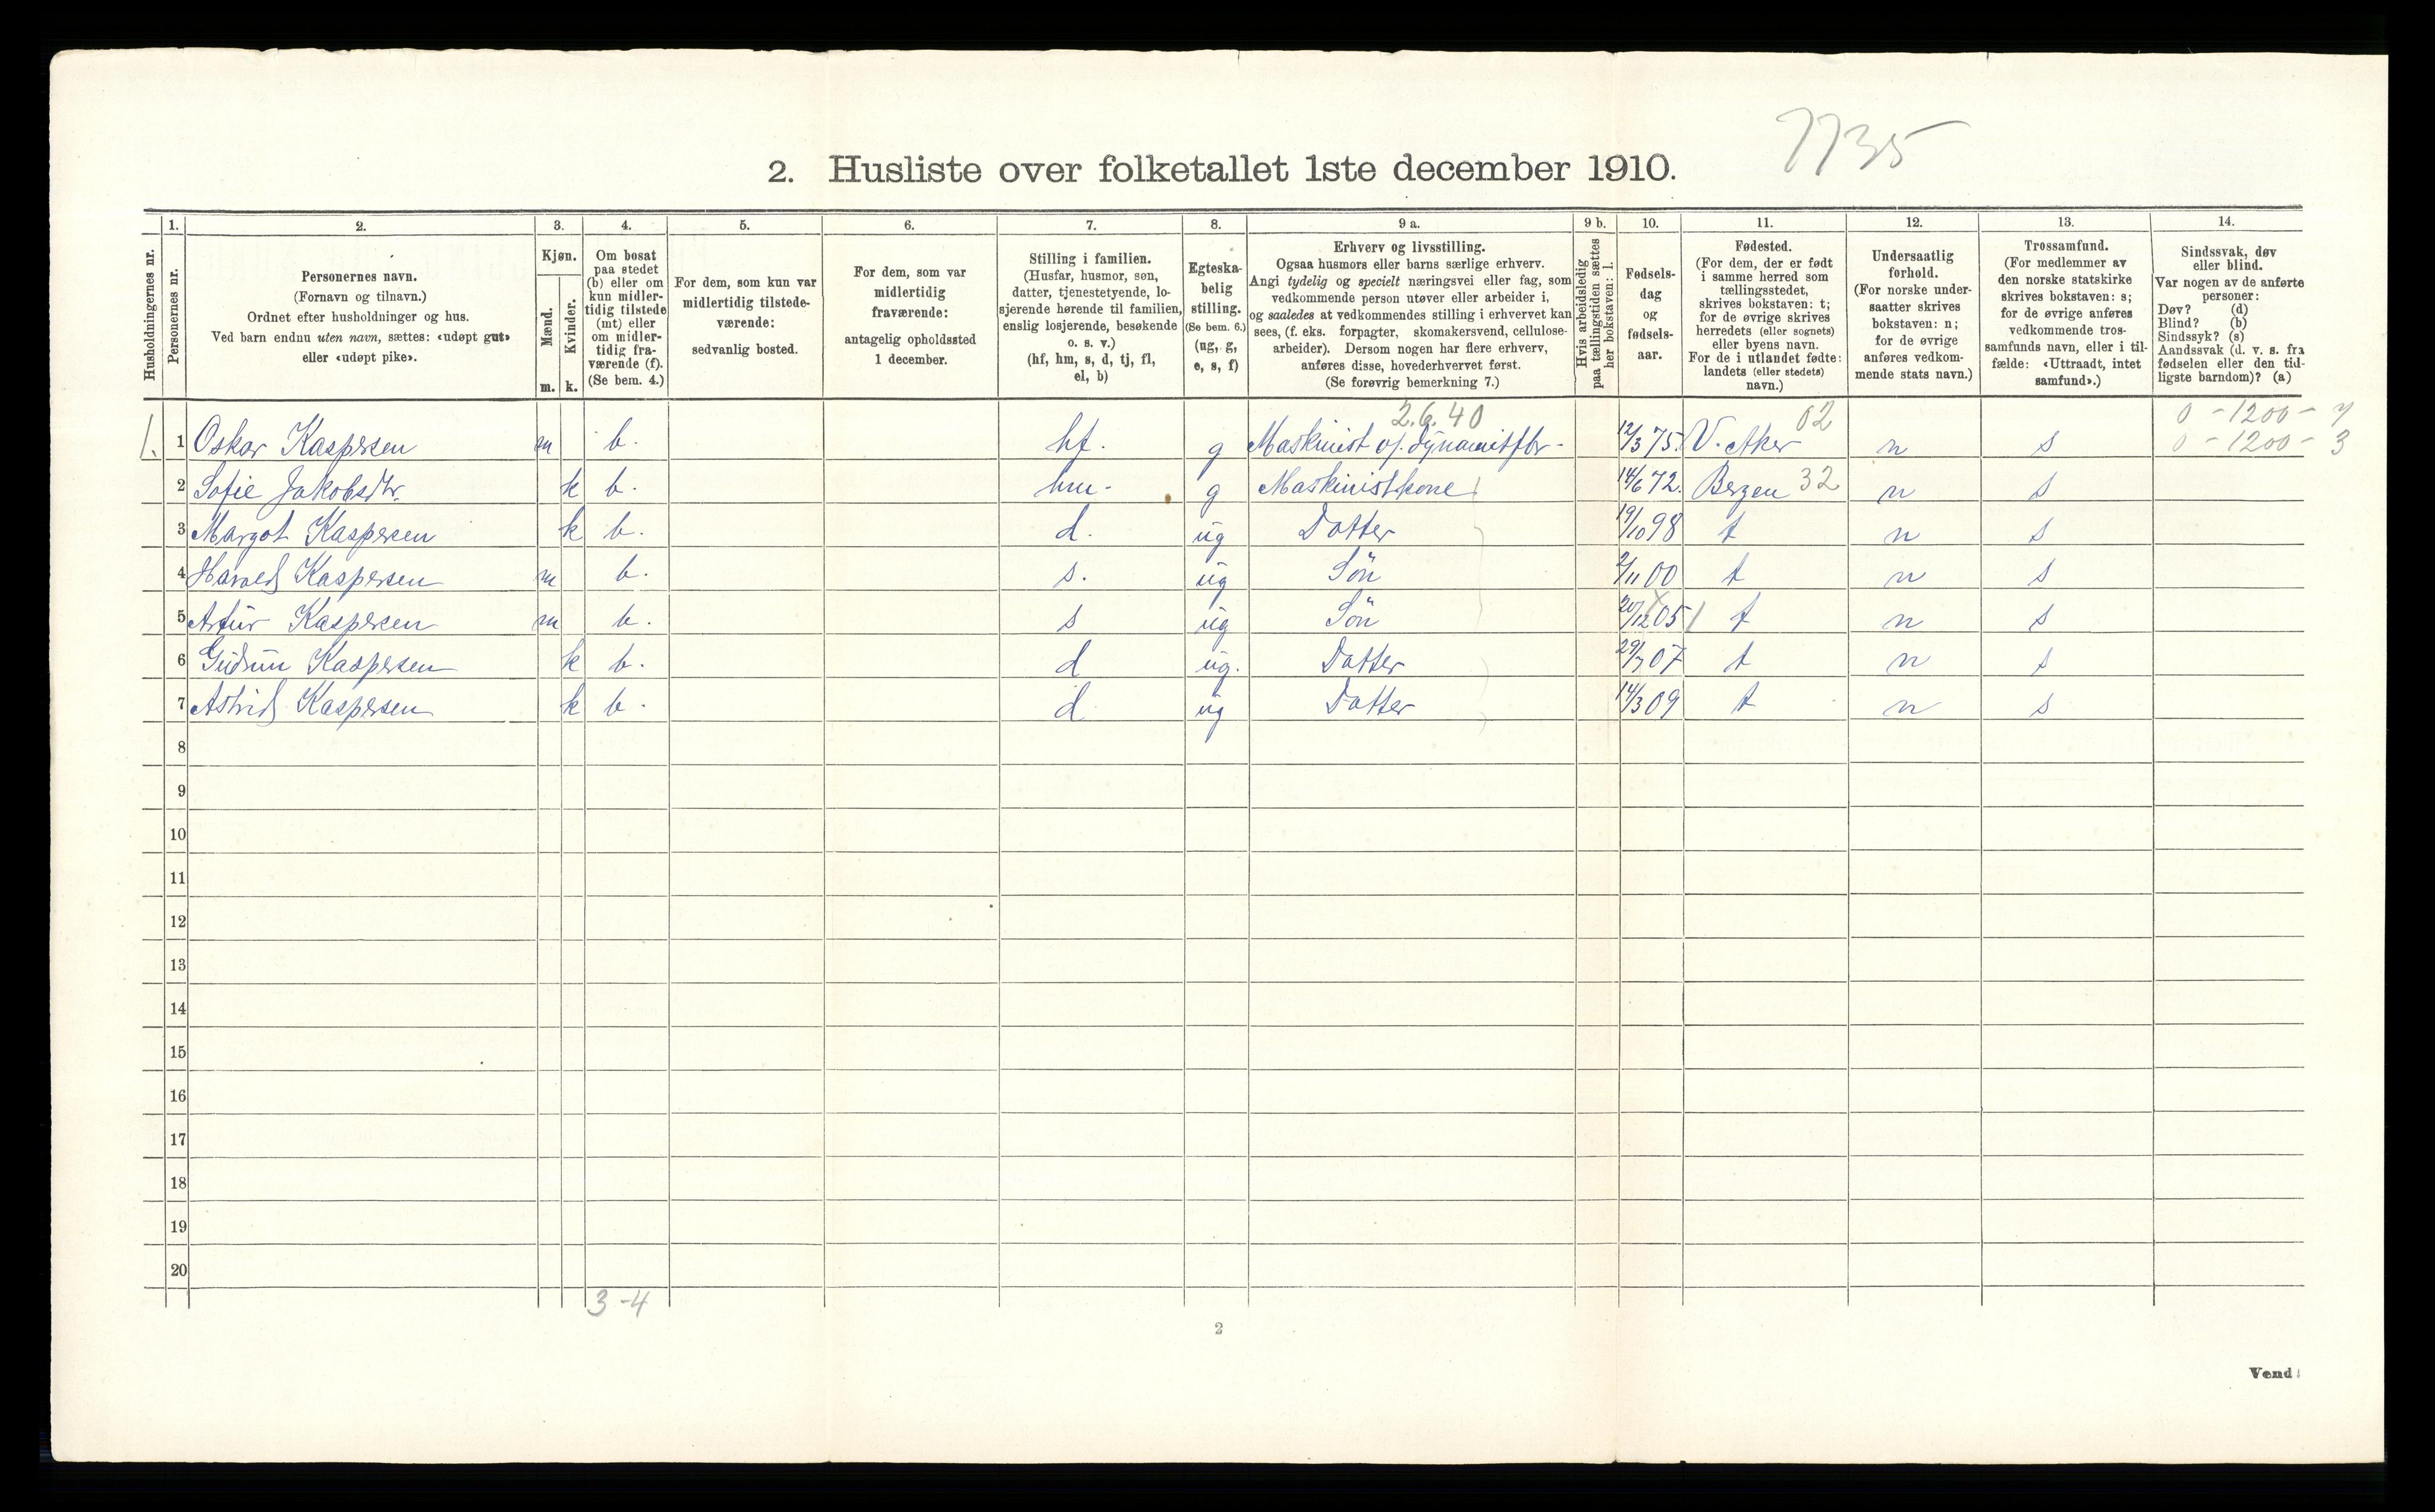 7735
2. Husliste over folketallet 1ste december 1910.
1. 2. 3. 4. 5. 6. 7. 8. 9 a. 9 b. 10. 11. 12. 13. 14.
Husholdningernes nr.
Personernes nr.
Personernes navn.
(Fornavn og tilnavn.)
Ordnet efter husholdninger og hus.
Ved barn endnu uten navn, sættes: «udøpt gut»
eller «udøpt pike».
Kjøn.
Mænd.
Kvinder.
m. k.
Om bosat
paa stedet
(b) eller om
kun midler-
tidig tilstede
(mt) eller
om midler-
tidig fra-
værende (f).
(Se bem. 4.)
For dem, som kun var
midlertidig tilstede-
værende:
sedvanlig bosted.
For dem, som var
midlertidig
fraværende:
antagelig opholdssted
1 december.
Stilling i familien.
(Husfar, husmor, søn,
datter, tjenestetyende, lo-
sjerende hørende til familien,
enslig losjerende, besøkende
o. s. v.)
(hf, hm, s, d, tj, fl,
el, b)
Egteska-
belig
stilling.
(Se bem. 6.)
(ug, g,
e, s, f)
Erhverv og livsstilling.
Ogsaa husmors eller barns særlige erhverv.
Angi tydelig og specielt næringsvei eller fag, som
vedkommende person utøver eller arbeider i,
og saaledes at vedkommendes stilling i erhvervet kan
sees, (f. eks. forpagter, skomakersvend, cellulose-
arbeider). Dersom nogen har flere erhverv,
anføres disse, hovederhvervet først.
(Se forøvrig bemerkning 7.)
Hvis arbeidsledig
paa tællingstiden sættes
her bokstaven: l.
Fødsels-
dag
og
fødsels-
aar.
Fødested.
(For dem, der er født
i samme herred som
tællingsstedet,
skrives bokstaven: t;
for de øvrige skrives
herredets (eller sognets)
eller byens navn.
For de i utlandet fødte:
landets (eller stedets)
navn.)
Undersaatlig
forhold.
(For norske under-
saatter skrives
bokstaven: n;
for de øvrige
anføres vedkom-
mende stats navn.)
Trossamfund.
(For medlemmer av
den norske statskirke
skrives bokstaven: s;
for de øvrige anføres
vedkommende tros-
samfunds navn, eller i til-
fælde: «Uttraadt, intet
samfund».)
Sindssvak, døv
eller blind.
Var nogen av de anførte
personer:
Døv? (d)
Blind? (b)
Sindssyk? (s)
Aandssvak (d. v. s. fra
fødselen eller den tid-
ligste barndom)? (a)
2.6.40 02 0 - 1200 - 4
1. 1 Oskar Kaspersen m b. hf. g Maskinist v/. dynamitfbr- 12/3 75. V. Aker n s 0 - 1200 - 3
2 Sofie Jakobsdtr. k b. hm- g Maskinistkone 14/6 72. Bergen 32 n s
3 Margot Kaspersen k b. d. ug Datter 19/10 98 t n s
4 Harald Kaspersen m b. s. ug Sön 2/11 00 t n s
5 Artur Kaspersen m b. s ug Sön 20/12 05 t n s
6 Gudrun Kaspersen k b. d ug. Datter 29/7 07 t n s
7 Astrid Kaspersen k b. d ug Datter 14/3 09 t n s
8
9
10
11
12
13
14
15
16
17
18
19
20
3-4
2
Vend